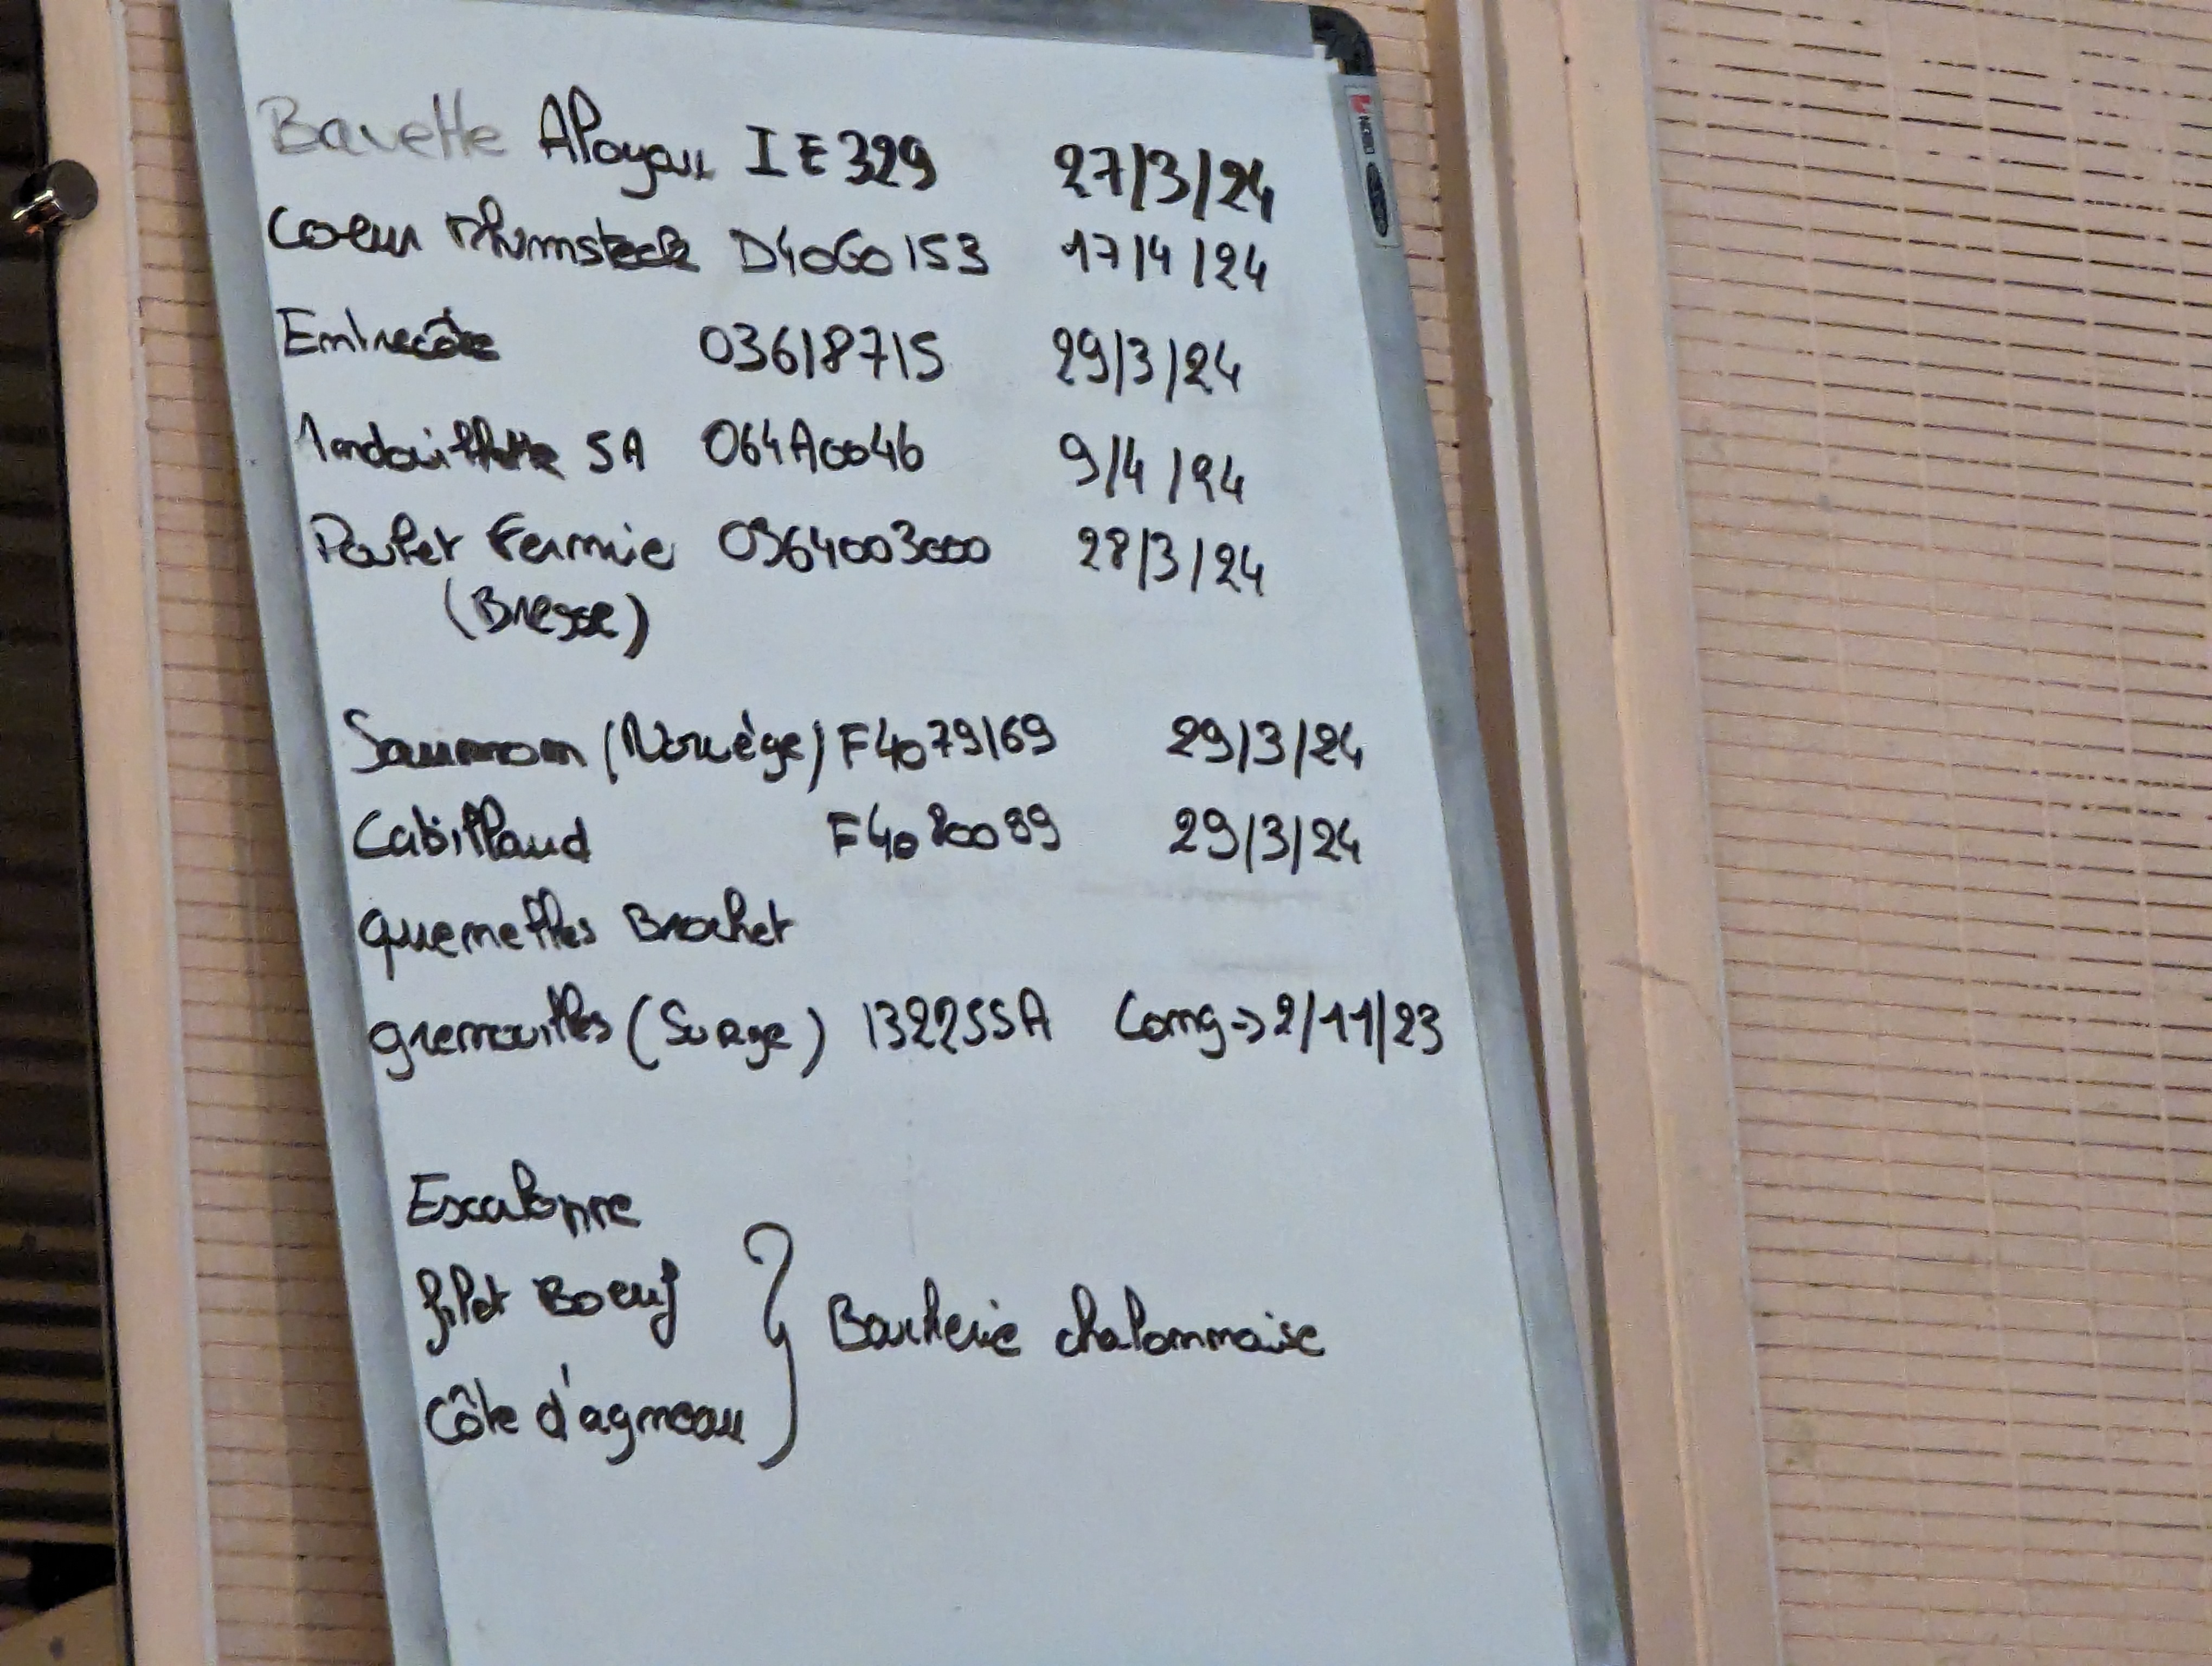 Bavette Aloyau IE329 27/3/24
Coeur Rhumsteck D4060153 17/4/24
Entrecôte 03618715 29/3/24
Andouillette 5A 064A0046 9/4/24
Poulet Fermie 0964003000 28/3/24
(Bresse)
Saumon (Norvège) F4079169 29/3/24
Cabillaud F4080089 29/3/24
quenelles Brochet
grenouilles (Suage) 132255A Cong->2/11/23
Escalope
filet Boeuf
Boucherie chalonnaise
Côte d'agneau